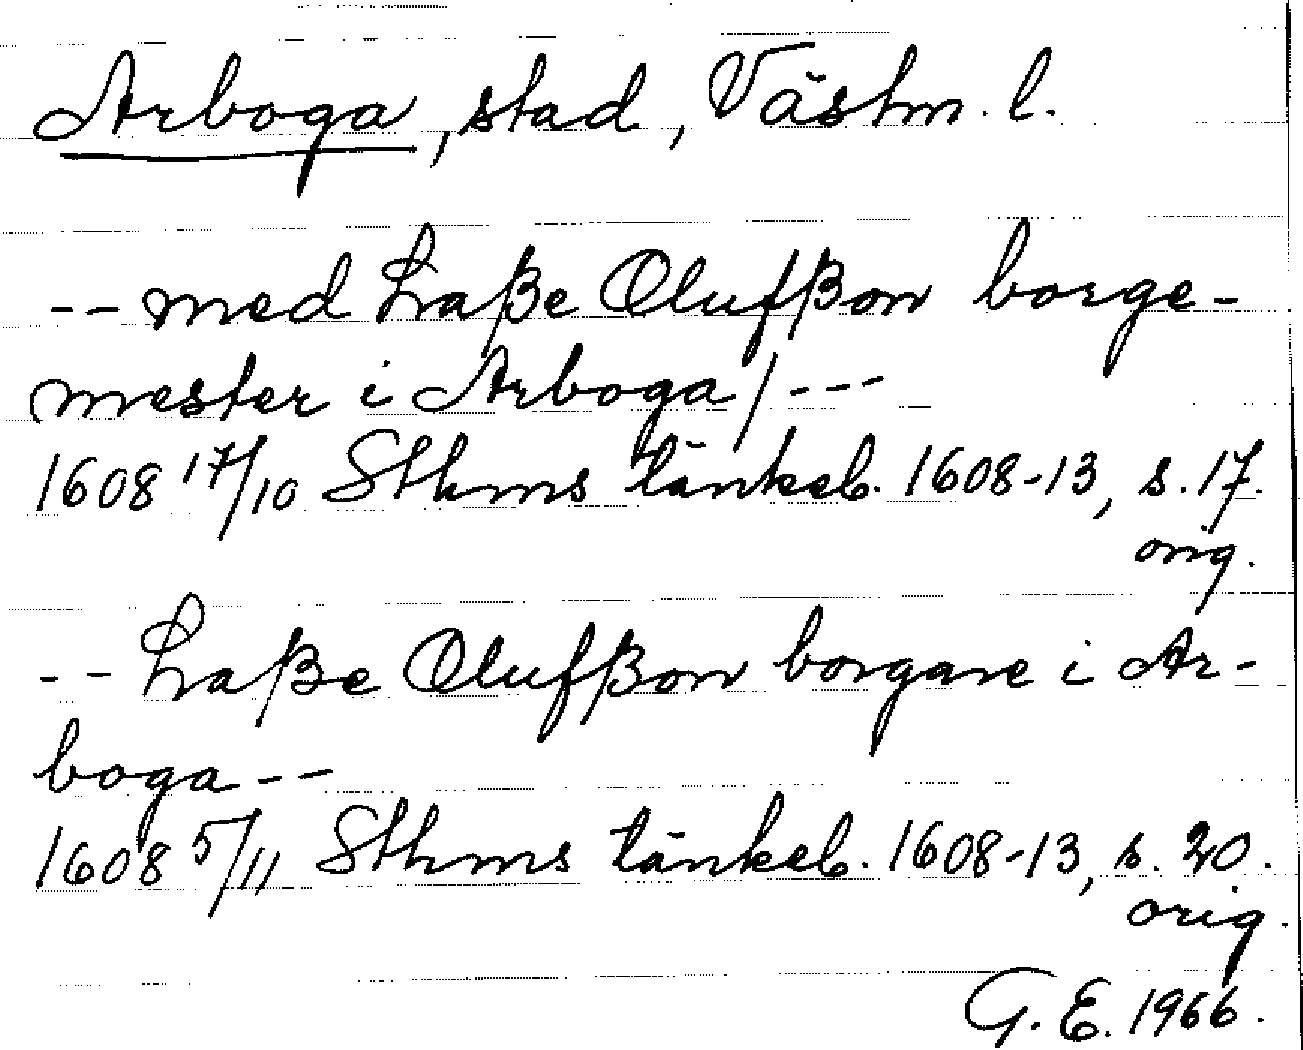 Arboga, stad, Västm. l.
-- med Laße Olufßon borge-
mester i Arboga / ---
1608 17/10 Sthms tänkeb. 1608-13, s. 17.
orig.
-- Laße Olufßon borgare i Ar-
boga --
1608 5/11 Sthms tänkeb. 1608-13, s. 20.
orig.
G. E. 1966.